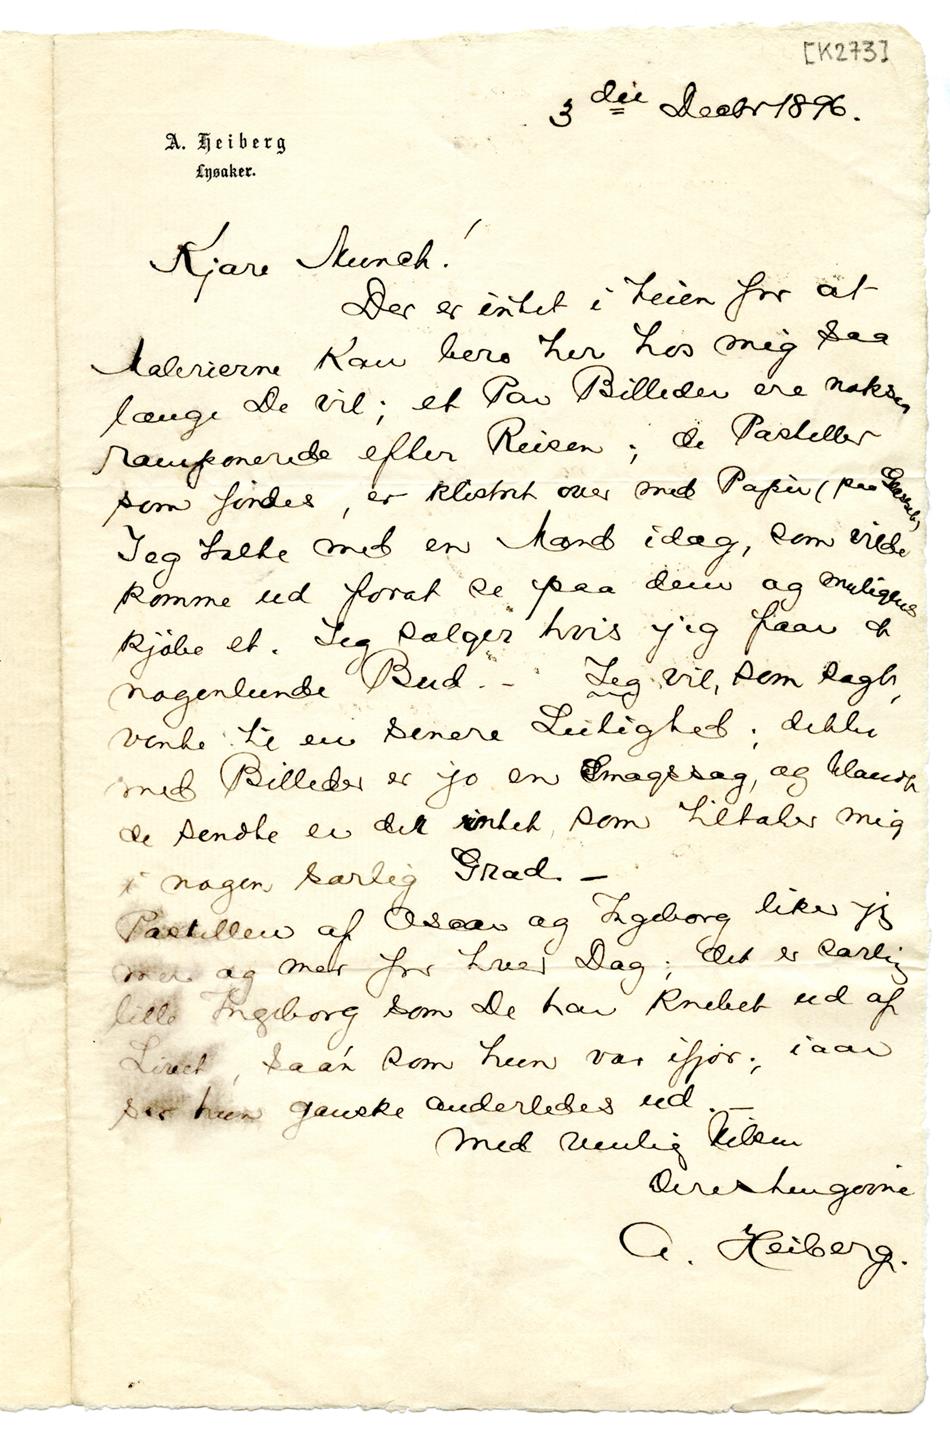 [K273]
3 die Decbr 1896.
A. Heiberg
Lysaker.
Kjære Munch!
Der er intet i Veien for at
Malerierne kan bero her hos mig saa
længe De vil; et Par Billeder ere noksaa
ramponerede efter Reisen; de Pasteller
som fandtes, er klistret over med Papir (paa
Jeg talte med en Mand idag, som vilde
komme ud forat se paa dem og muligens
kjøbe et. Jeg sælger hvis jeg faar et
nogenlunde Bud. – Jeg vil, som sagt,
vente til en senere Leilighed; dette
med Billeder er jo en Smagssag, og blandt
de sendte er der intet, som tiltaler mig
i nogen særlig Grad. –
Pastellen af Oscar og Ingeborg liker jeg
mer og mer for hver Dag; det er særlig
lille Ingeborg som De har knebet ud af
Livet, saa'n som hun var ifjor; iaar
ser hun ganske anderledes ud. –
Med venlig Hilsen
Deres hengivne
A. Heiberg.